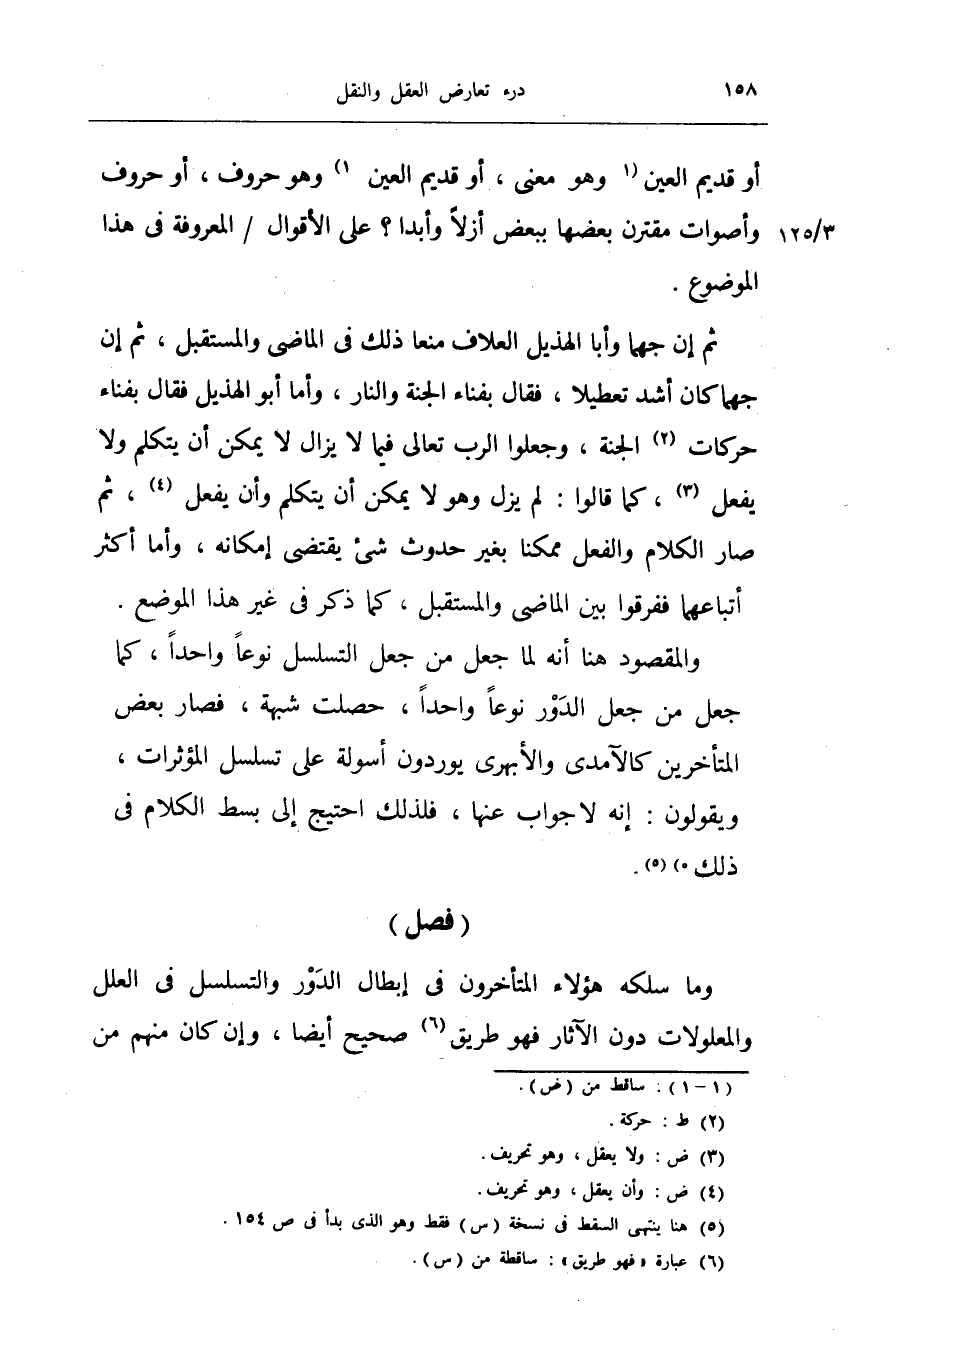 ١٥٨ درء تعارض العقل والنقل
أو قديم العين (١ وهو معنى ، أو قديم العين ١) وهو حروف ، أو حروف
١٢٥/٣ وأصوات مقترن بعضها ببعض أزلاً وأبدا ؟ على الأقوال / المعروفة فى هذا
الموضوع .
ثم إن جهما وأبا الهذيل العلاف منعا ذلك فى الماضى والمستقبل ، ثم إن
جهما كان أشد تعطيلا ، فقال بفناء الجنة والنار ، وأما أبو الهذيل فقال بفناء
حركات (٢) الجنة ، وجعلوا الرب تعالى فيما لا يزال لا يمكن أن يتكلم ولا
يفعل (٣) ، كما قالوا : لم يزل وهو لا يمكن أن يتكلم وأن يفعل (٤) ، ثم
صار الكلام والفعل ممكنا بغير حدوث شئ يقتضى إمكانه ، وأما أكثر
أتباعهما ففرقوا بين الماضى والمستقبل ، كما ذكر فى غير هذا الموضع .
والمقصود هنا أنه لما جعل من جعل التسلسل نوعاً واحداً ، كما
جعل من جعل الدَوْر نوعاً واحداً ، حصلت شبهة ، فصار بعض
المتأخرين كالآمدى والأبهرى يوردون أسولة على تسلسل المؤثرات ،
ويقولون : إنه لا جواب عنها ، فلذلك احتيج إلى بسط الكلام فى
ذلك ٠) (٥) .
( فصل )
وما سلكه هؤلاء المتأخرون فى إبطال الدَوْر والتسلسل فى العلل
والمعلولات دون الآثار فهو طريق (٦) صحيح أيضا ، وإن كان منهم من
(١ – ١) : ساقط من (ض) .
(٢) ط : حركة .
(٣) ض : ولا يعقل ، وهو تحريف .
(٤) ض : وأن يعقل ، وهو تحريف .
(٥) هنا ينتهى السقط فى نسخة (س) فقط وهو الذى بدأ فى ص ١٥٤ .
(٦) عبارة «فهو طريق» : ساقطة من (س) .